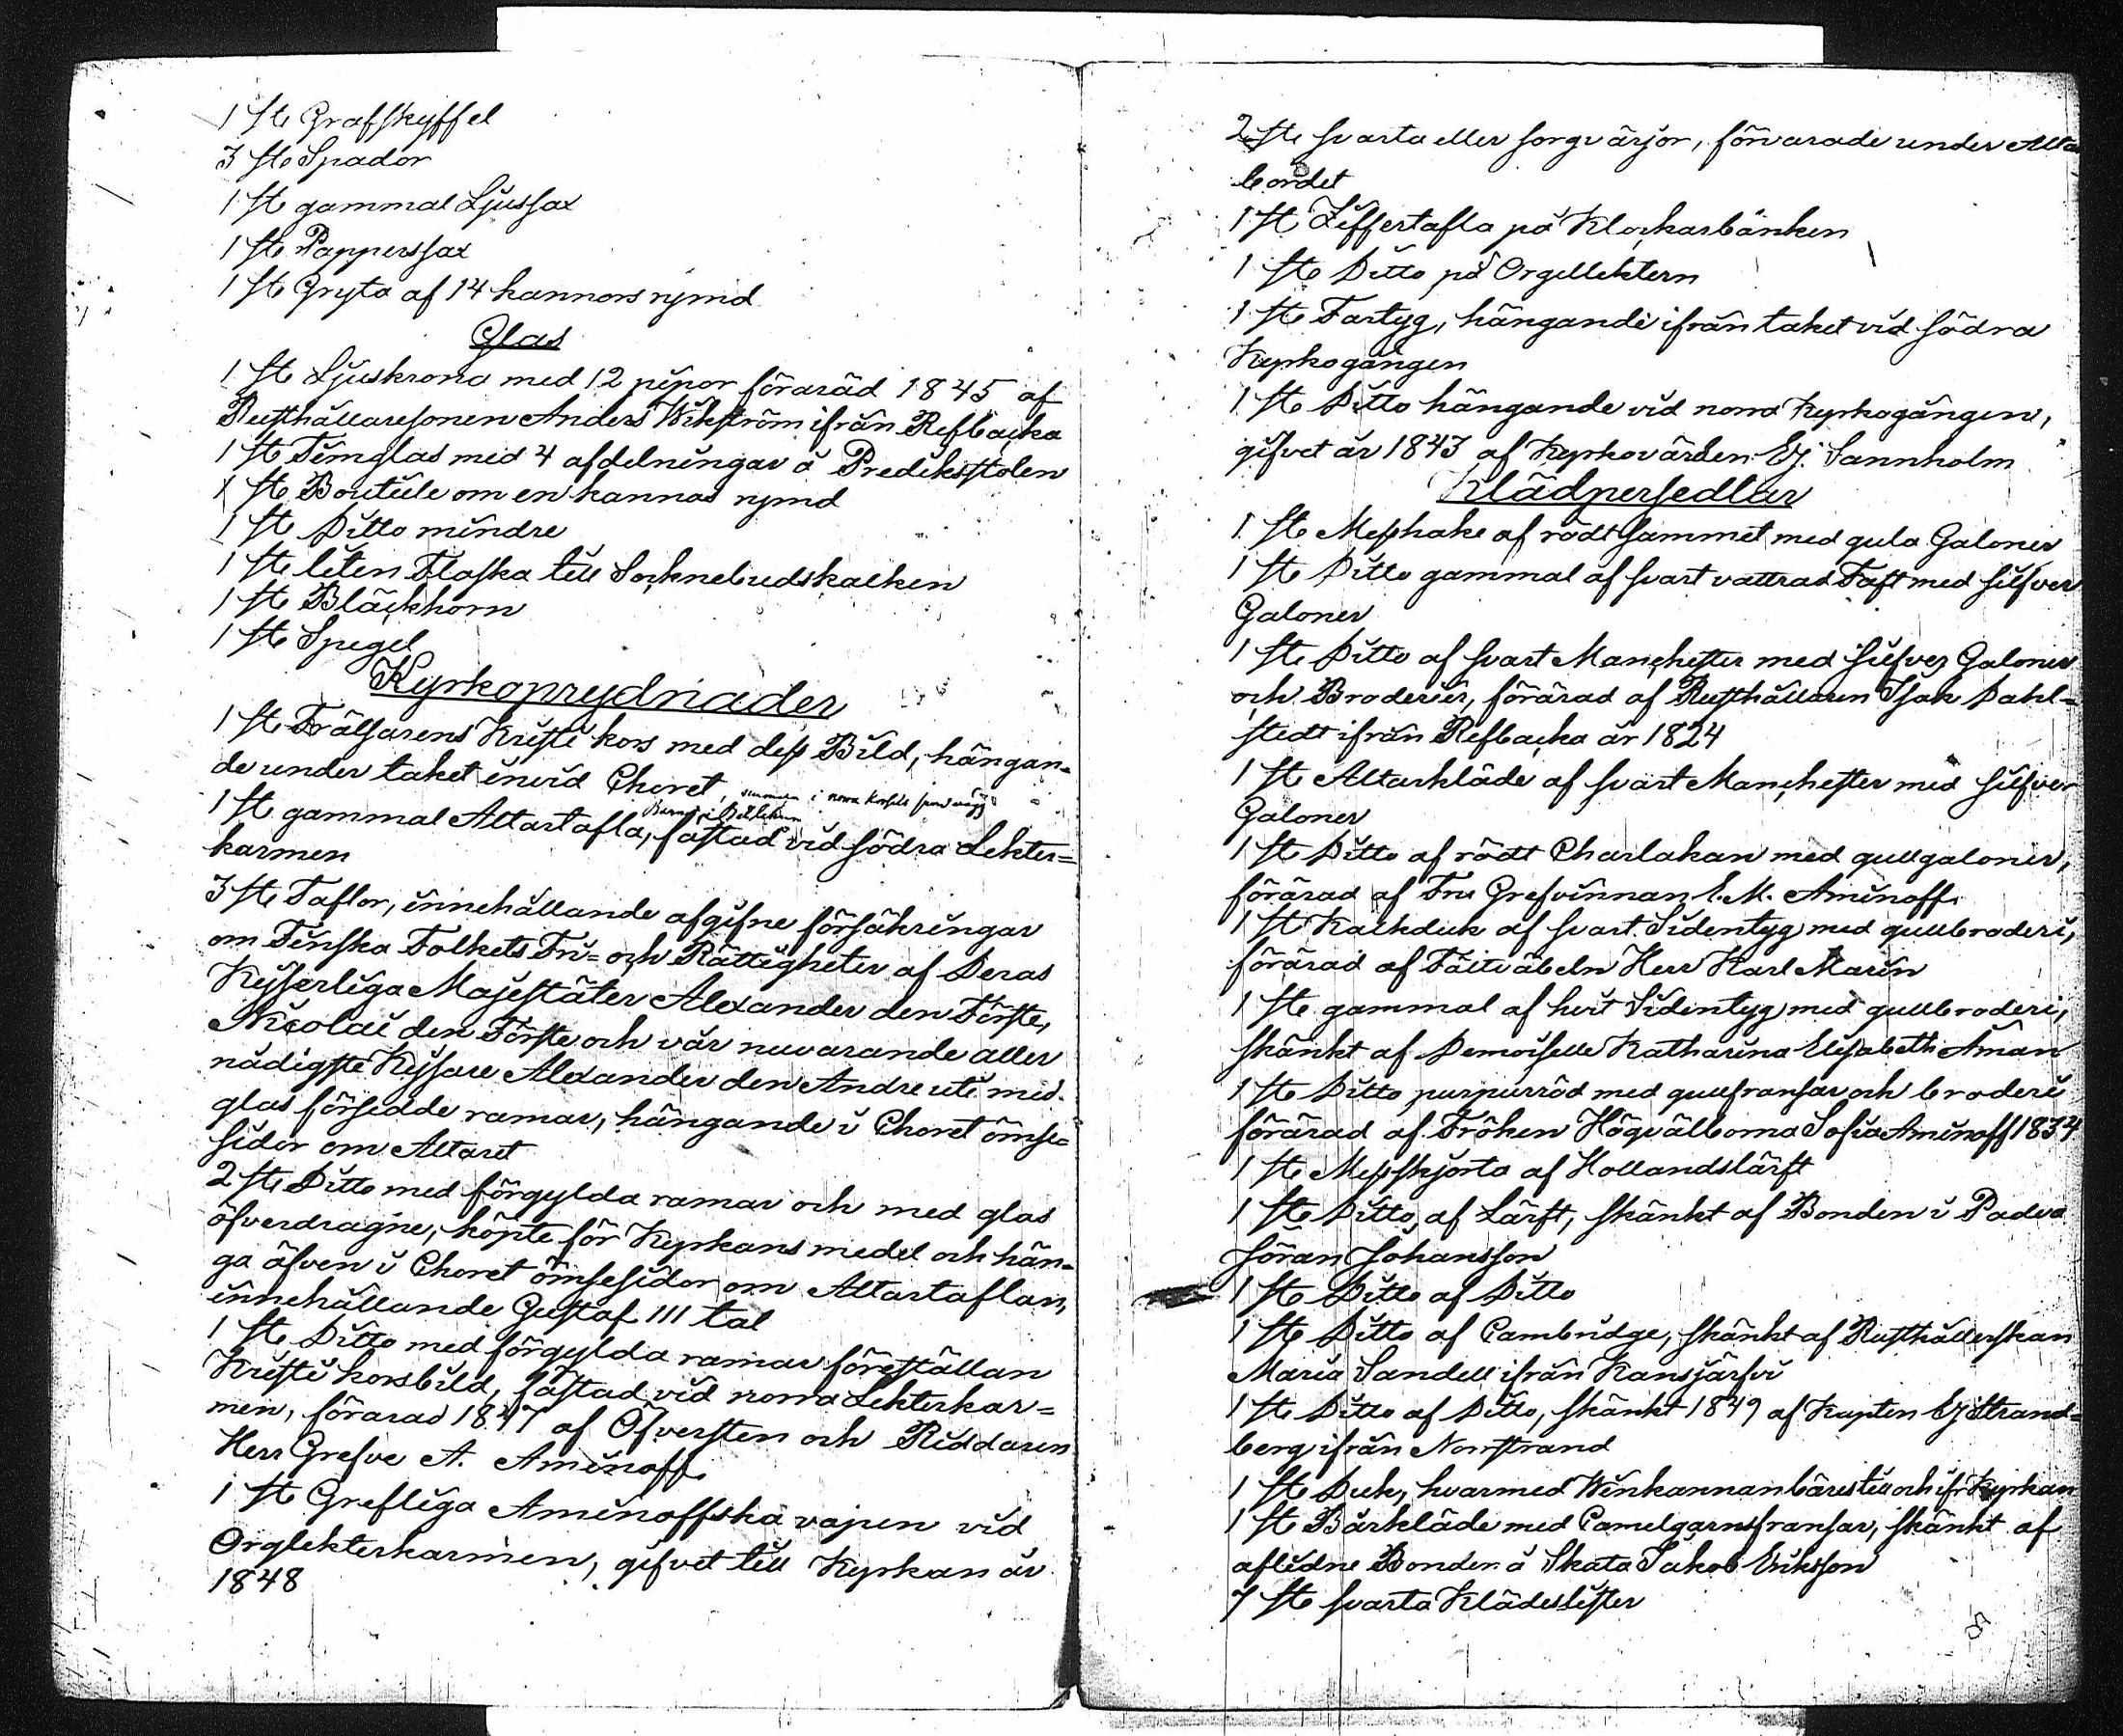 1 St. Grafskyffel
3 St. Spador
1 St. gammal Ljussax
1 St. Papperssax
1 St. Gryta af 14 kannors rymd
Glas
1 St. Ljuskrona med 12 pipor föraräd 1845 af
Rusthållaresonen Anders Wikström ifrån Refbacka
1 St. Timglas med 4 afdelningar å Predikstolen
1 St. Bouteile om en kannas rymd
1 St. Ditto mindre
1 St. liten Flaska till Socknebudskalken
1 St. Bläckhorn
1 St. Spegel
Kyrkoprydnader
1 St. Frälsarens Kristi kors med dess Bild, hängan-
de under taket invid Choret, i norra
Barnen i Betlehem
1 St. gammal Altartafla, fästad vid södra Lekter=
karmen
3 St. Taflor, innehållande afgifne försäkringar
om Finska Folkets Fri= och Rättigheter af Deras
Kejserliga Majestäter Alexander den Förste,
Nicolai den Förste och vår nuvarande aller
nådigste Kejsare Alexander den Andre uti med
glas försedde ramar, hängande i Choret ömse=
sidor om Altaret
2 St. Ditto med förgylda ramar och med glas
öfverdragne, köpte för Kyrkans medel och hän-
ga äfven i Choret ömsesidor om Altartaflan,
innehållande Gustaf III tal
1 St. Ditto med förgylda ramar föreställan
Kristi korsbild, fästad vid norra Lekterkar=
men, förarad 1847 af Öfversten och Riddaren
Herr Grefve A. Aminoff.
1 St. Grefliga Aminoffska vapen vid
Orglekterkarmen, gifvet till Kyrkan år
1848
2 St. svarta eller sorgvärjor, förvarade under Alta
bordet
1 St. Ziffertafla på Klockarbänken
1 St. Ditto på Orgellektern
1 St. Fartyg, hängande ifrån taket vid södra
Kyrkogången
1 St. Ditto hängande vid norra Kyrkogången,
gifvet år 1843 af Kyrkovärden Ej. Sannholm
Klädpersedlar
1 St. Messhake af rödt Sammet med gula Galoner
1 St. Ditto gammal af svart vattrad Taft med silfver
Galoner
1 St. Ditto af svart Manchester med Silfver Galoner
och Broderier, förärad af Rusthållaren Isak Dahl-
stedt ifrån Refbacka år 1824
1 St. Altarkläde af svart Manchester med silfver
Galoner
1 St. Ditto af rödt Charlakan med gullgaloner,
förärad af Fru Grefvinnan E. M. Aminoff.
1 St. Kalkduk af svart Sidentyg med gullbroderi,
förärad af Fältväbeln Herr Karl Marin
1 St. gammal af hvit Sidentyg med gullbroderi,
skänkt af Demoiselle Katharina Elisabeth Åman
1 St. Ditto purpurröd med gullfransar och broderi
förärad af Fröken Högvälborna Sofia Aminoff 1834
1 St. Messskjorta af Hollandslärft
1 St. Ditto, af Lärft, skänkt af Bonden i Padva
Jöran Johansson
1 St. Ditto af Ditto
1 St. Ditto af Cambridge, skänkt af Rusthållerskan
Maria Sandell ifrån Kansjärfvi
1 St. Ditto af Ditto, skänkt 1849 af Kapten Ej Strand-
berg ifrån Norrstrand
1 St. Duk, hvarmed Winkannan bäres till och ifr. Kyrkan
1 St. Bårkläde med Camelgarnsfransar, skänkt af
aflidne Bonden å Skata Jakob Eriksson
7 St. svarta Klädeslister